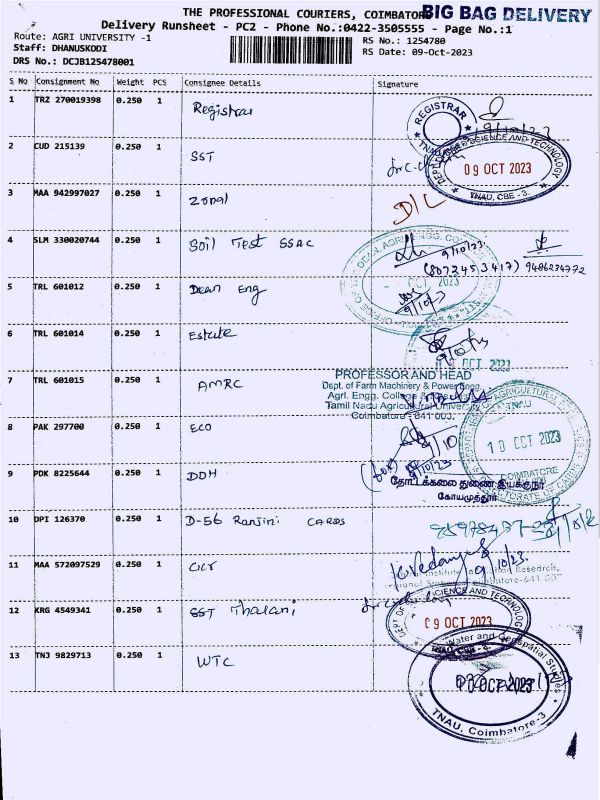 THE PROFESSIONAL COURIERS, COIMBATORE
BIG BAG DELIVERY
Delivery Runsheet - PC2 - Phone No.:0422-3505555 - Page No.:1
Route: AGRI UNIVERSITY -1
RS No.: 1254780
Staff: DHANUSKODI
RS Date: 09-Oct-2023
DRS No.: DCJB125478001
S No Consignment No Weight PCS Consignee Details Signature
1 TRZ 270019398 0.250 1 Registrar
REGISTRAR
TNAU
9/10/23
2 CUD 215139 0.250 1 SST
SCIENCE AND TECHNOLOGY
09 OCT 2023
TNAU, CBE - 3.
3 MAA 942997027 0.250 1 Zonal
D/L
4 SLM 330020744 0.250 1 Soil Test SSAC
9/10/23
9486234772
5 TRL 601012 0.250 1 Dean Eng
OCT 2023
9/10/23
6 TRL 601014 0.250 1 Estate
OCT 2023
7 TRL 601015 0.250 1 AMRC
PROFESSOR AND HEAD
Dept. of Farm Machinery & Power Engg.
Agri. Engg. College &
Tamil Nadu Agricultural University
Coimbatore - 641 003.
8 PAK 297700 0.250 1 ECO
TNAU
10 OCT 2023
COIMBATORE
9 PDK 8225644 0.250 1 DDH
9/10/23
தோட்டக்கலை துணை இயக்குநர்
கோயமுத்தூர்
10 DPI 126370 0.250 1 D-56 Ranjini CARDS
11 MAA 572097529 0.250 1 CICR
9/10/23.
12 KRG 4549341 0.250 1 SST Thalani
DEPT OF SCIENCE AND TECHNOLOGY
09 OCT 2023
TNAU, CBE - 3
13 TNJ 9829713 0.250 1 WTC
Water and Geospatial Studies
OCT 2023
TNAU, Coimbatore-3